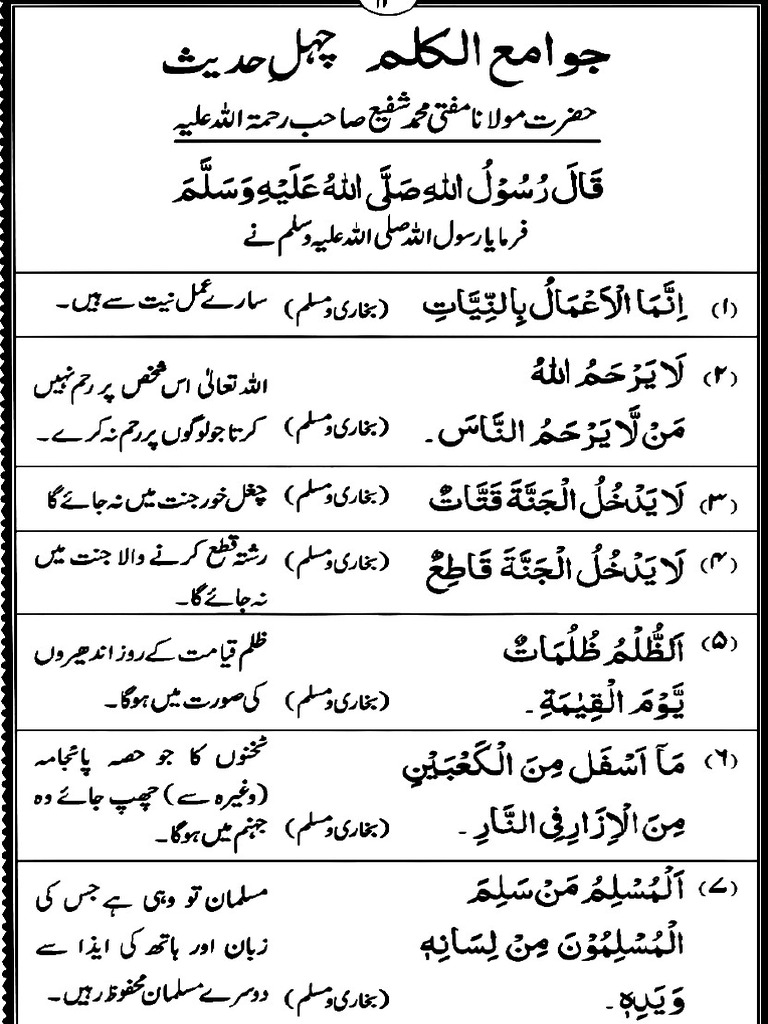 جوامع الکلم چہل حدیث
حضرت مولانا مفتی محمد شفیع صاحب رحمۃ اللہ علیہ
قَالَ رُسُوْلُ اللهِ صَلَّى اللهُ عَلَيْهِ وَسَلَّمَ
فرمایا رسول اللہ صلی اللہ علیہ وسلم نے
(۱) اِنَّمَا الْاَعْمَالُ بِالنِّيَّاتِ (بخاری و مسلم) سارے عمل نیت سے ہیں۔
(۲) لَا يَرْحَمُ اللهُ
مَنْ لَّا يَرْحَمُ النَّاسَ۔ (بخاری و مسلم)
اللہ تعالیٰ اس شخص پر رحم نہیں
کرتا جو لوگوں پر رحم نہ کرے۔
(۳) لَا يَدْخُلُ الْجَنَّةَ قَتَّاتٌ (بخاری و مسلم) چغل خور جنت میں نہ جائے گا
(۴) لَا يَدْخُلُ الْجَنَّةَ قَاطِعٌ (بخاری و مسلم) رشتہ قطع کرنے والا جنت میں
نہ جائے گا۔
(۵) اَلظُّلْمُ ظُلُمَاتٌ
يَّوْمَ الْقِيٰمَةِ۔ (بخاری و مسلم)
ظلم قیامت کے روز اندھیروں
کی صورت میں ہوگا۔
(۶) مَآ اَسْفَل مِنَ الْكَعْبَيْنِ
مِنَ الْاِزَارِ فِی النَّارِ۔ (بخاری و مسلم)
ٹخنوں کا جو حصہ پائجامہ
(وغیرہ سے) چھپ جائے وہ
جہنم میں ہوگا۔
(۷) اَلْمُسْلِمُ مَنْ سَلِمَ
الْمُسْلِمُوْنَ مِنْ لِسَانِهٖ
وَيَدِهٖ۔ (بخاری و مسلم)
مسلمان تو وہی ہے جس کی
زبان اور ہاتھ کی ایذا سے
دوسرے مسلمان محفوظ رہیں۔